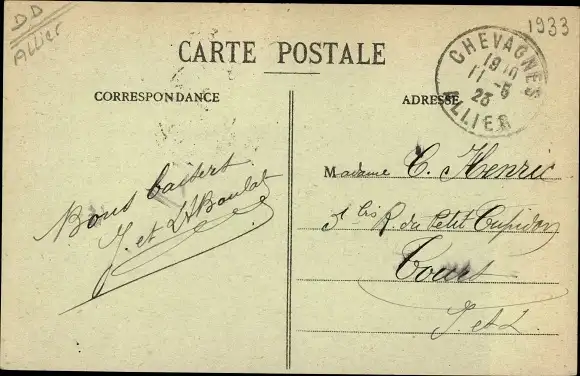 DD
Allier
1933
CARTE POSTALE
CORRESPONDANCE
ADRESSE
CHEVAGNES
11-5
23
ALLIER
Bons baisers
J. et L Boulat
Madame C. Henric
5 bis R. du Petit Cupidon
Tours
I. et L.